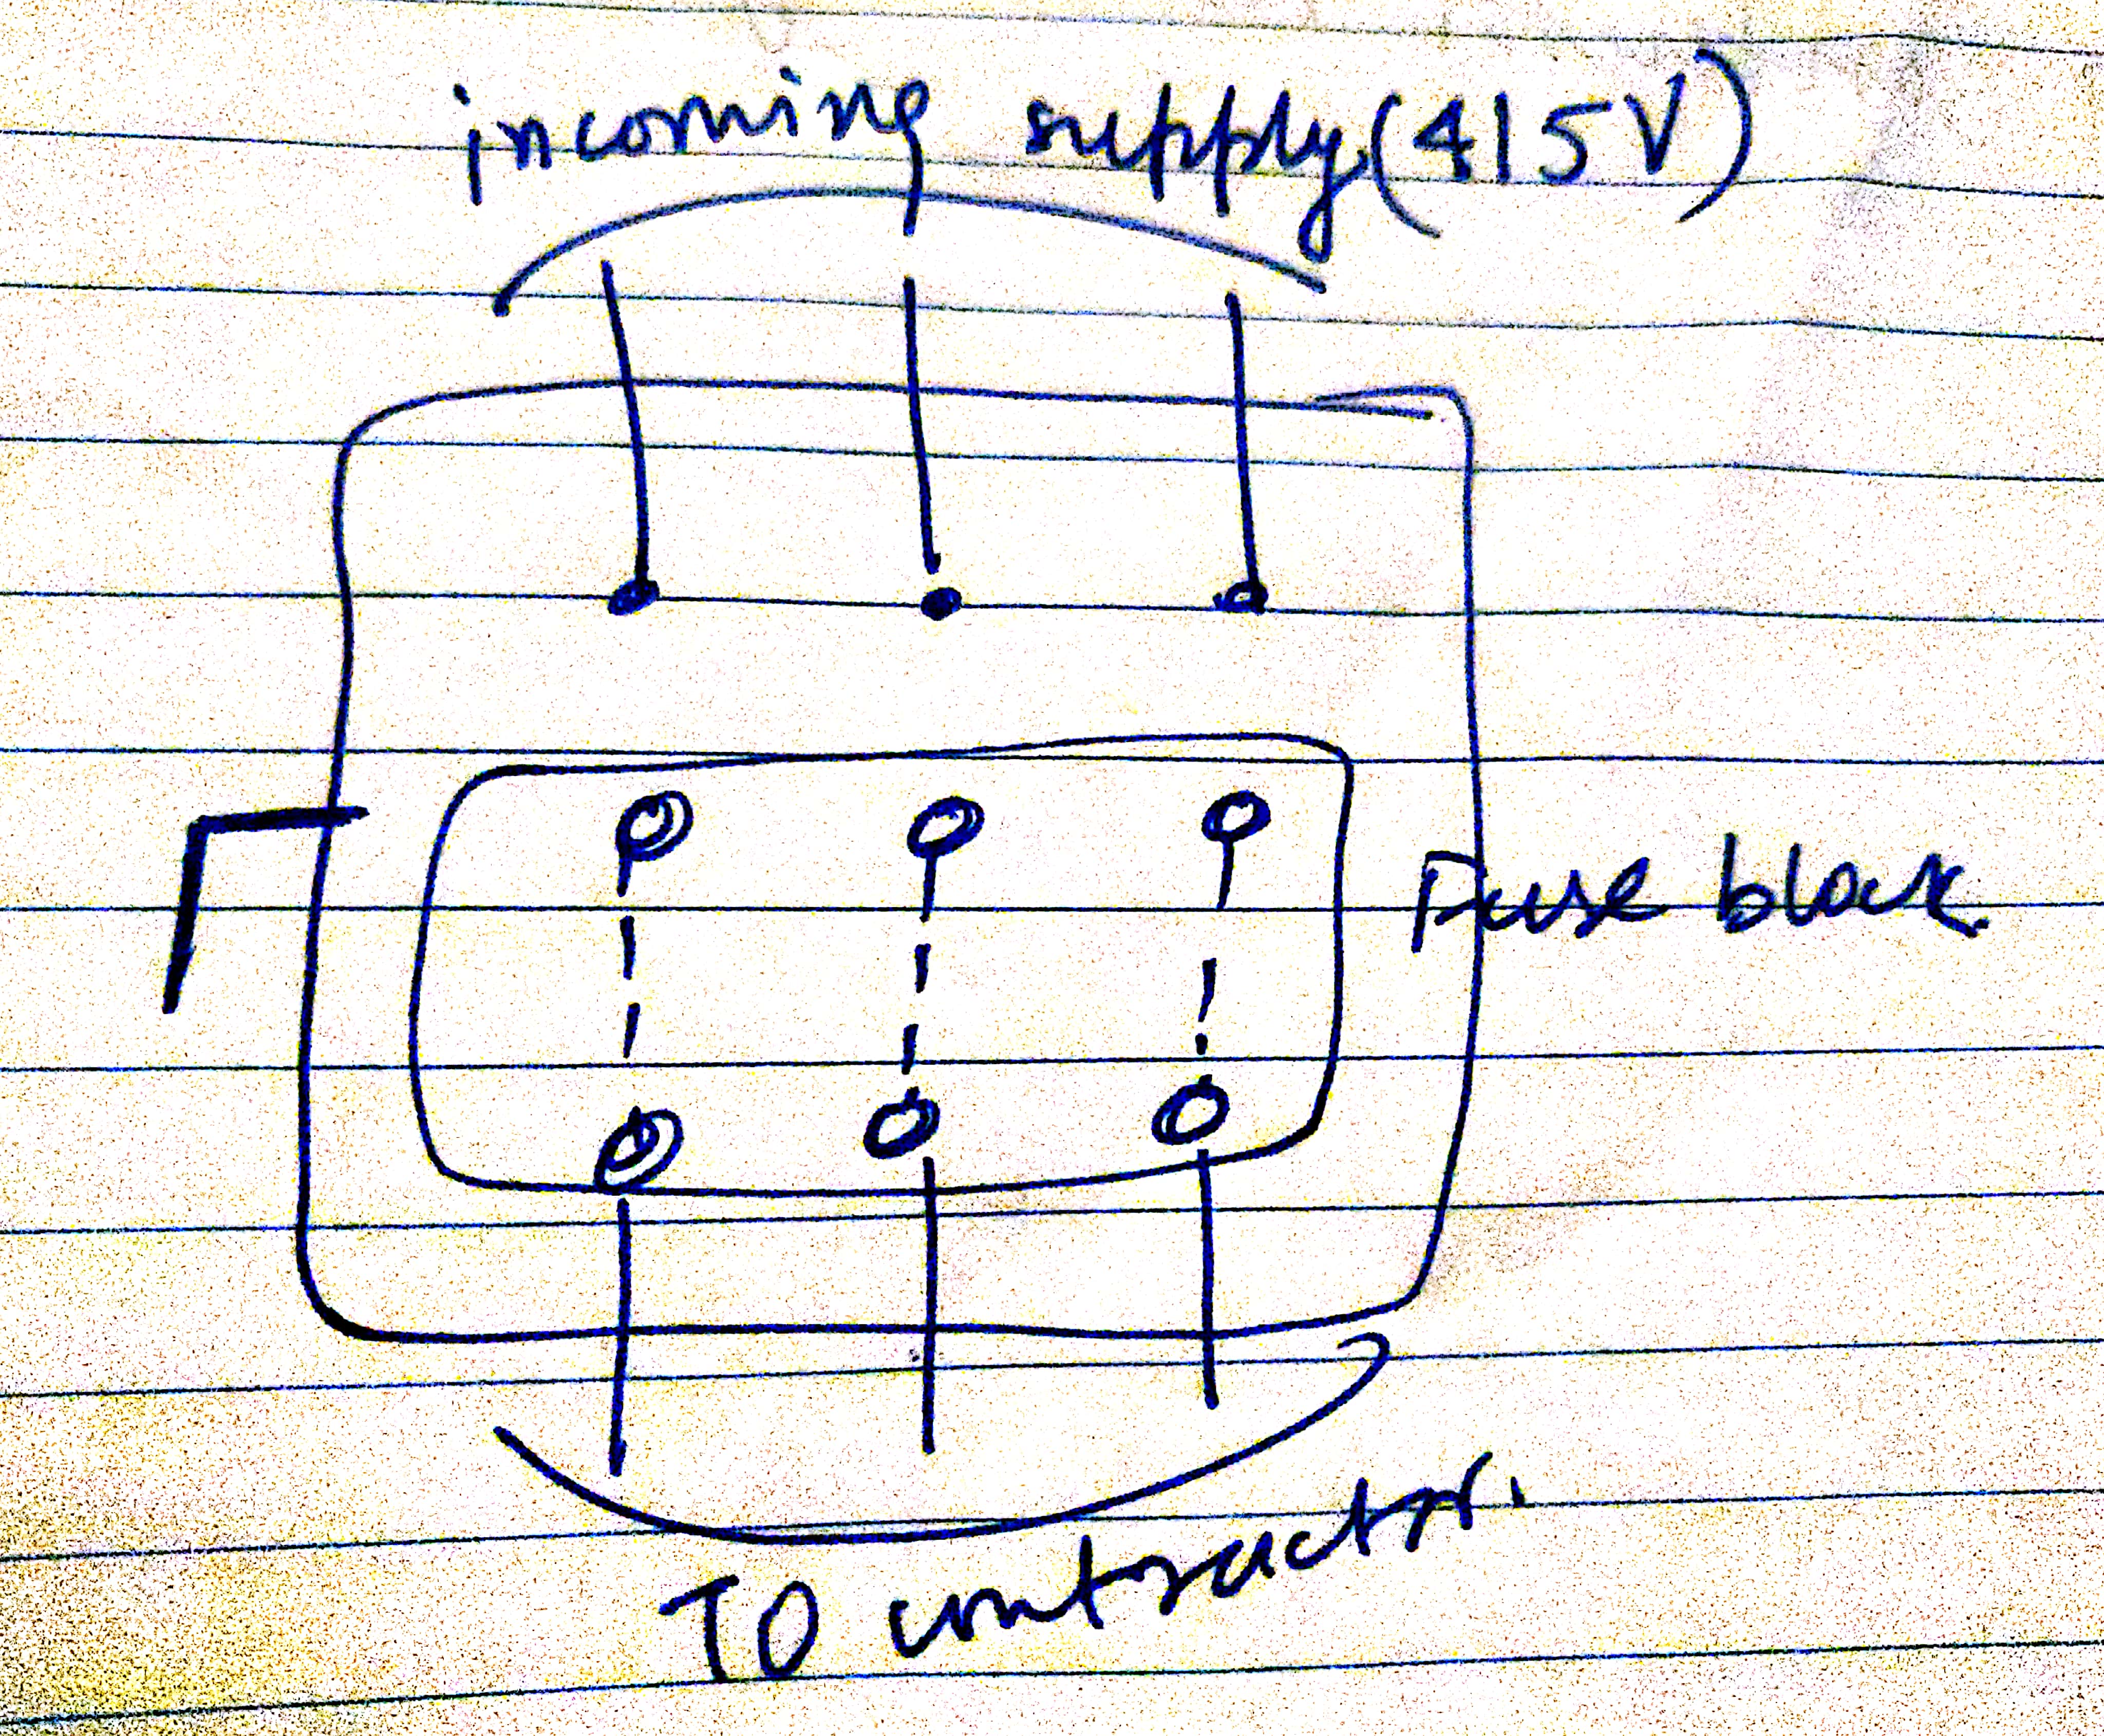 incoming supply (415V)
Fuse block
TO contractor.